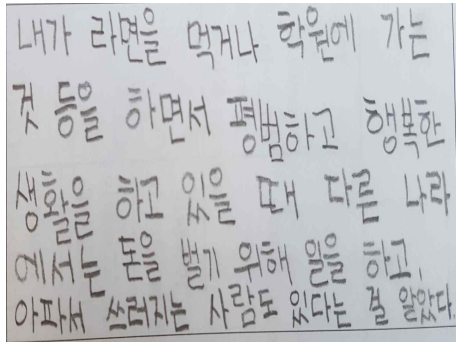 내가 라면을 먹거나 학원에 가는
것 등을 하면서 평범하고 행복한
생활을 하고 있을 때 다른 나라
에서는 돈을 벌기 위해 일을 하고,
아파서 쓰러지는 사람도 있다는 걸 알았다.